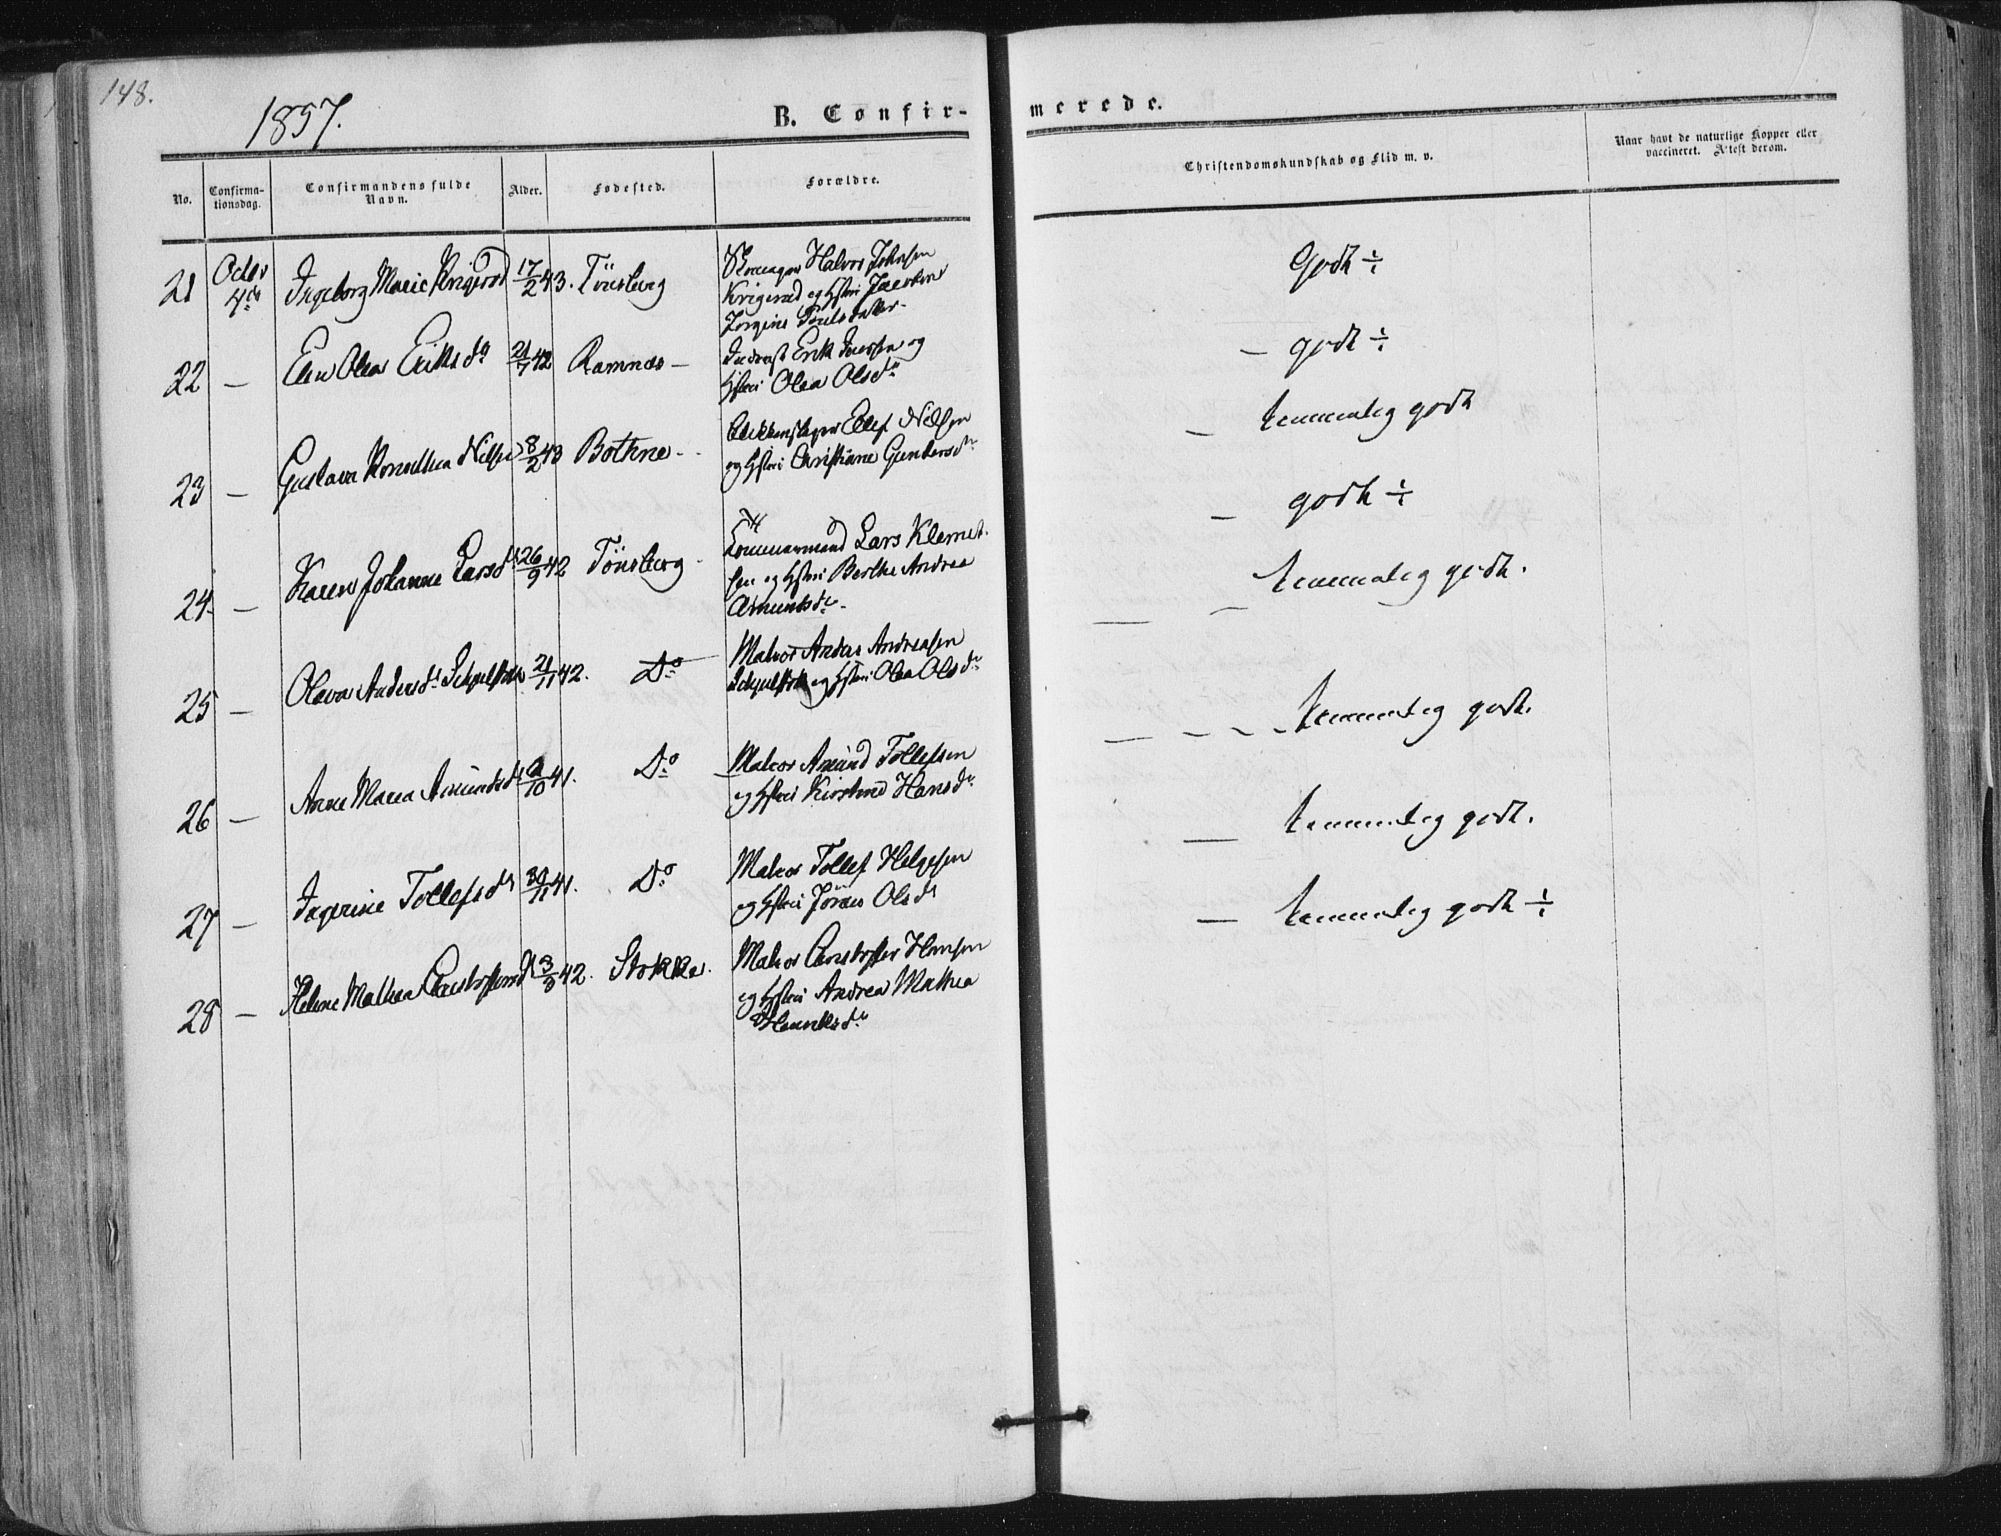 148.
1857.
B. Confir-
merede.
No.
Confirma-
tionsdag.
Confirmandens fulde
Navn.
Alder.
Fødested.
Forældre.
Christendomskundskab og Flid m. v.
Naar havt de naturlige Kopper eller
vaccineret. Attest derom.
21 Octbr Ingeborg Marie Krigerød 17/2 43. Tönsberg Halvor Johnsen
4de Krigerød og Hstrú
Jorgine
Godt ÷
22 — Elen Olea Eriksdr 21/7 42 Ramnæs — Indrest Erik og
Hstrú Olea Olsdr
— godt ÷
23 — Gustava Nilsen 8/2 43 Bothne - Blikkenslager Ellef Nilsen
og Hstrú Christiane Gundersdr
— temmelig godt
24 — Karen Johanne Larsdr 26/9 42 Tönsberg Lars Klemet-
sen og Hstrú Berthe Andrea
Amundsdr
— godt ÷
temmelig godt.
25 — Olava Andersdr 21/11 42. Do Matros Anders Andreasen
og Hstrú Olea Olsdr
— temmelig godt.
26 — Anne Maria Amundsdr /10 41. Do Matros Amund Tollefsen
og Hstrú Kirstine Hansdr
— temmelig godt.
27 — Ingerine Tollefsdr 30/11 41. Do Matros Tollef Helgesen
og Hstrú Olsdr
— temmelig godt ÷
28 — Helene Mathea 3/3 42. Stokke. Matros Christoffer Hansen
og Hstrú Andrea Mathea